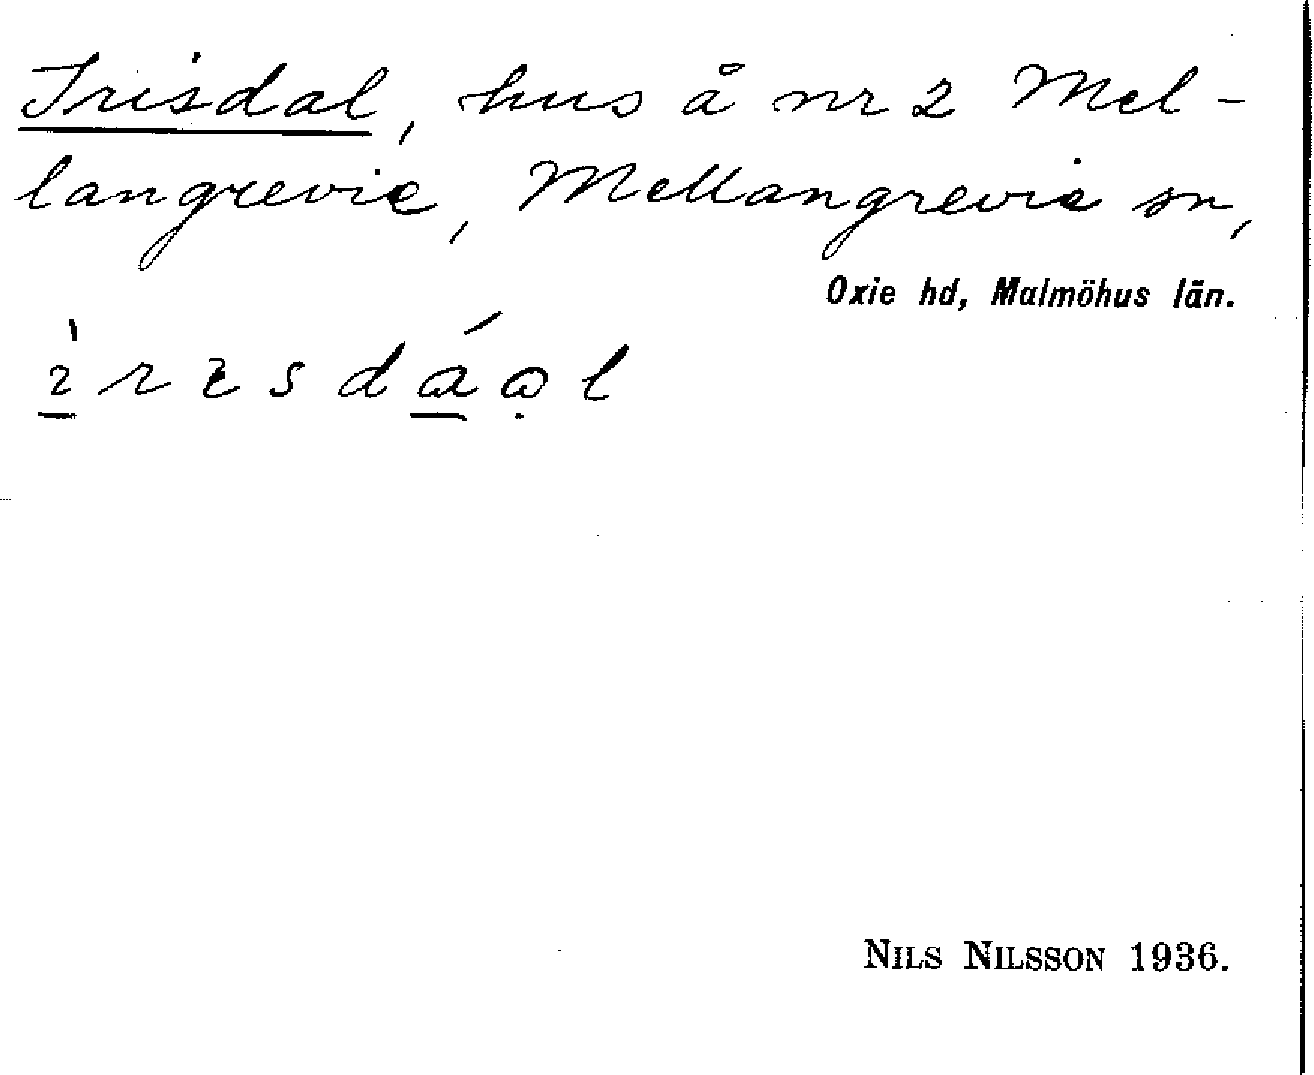 Irisdal, hus å nr 2 Mel-
langrevie, Mellangrevie sn,
Oxie hd, Malmöhus län.
NILS NILSSON 1936.